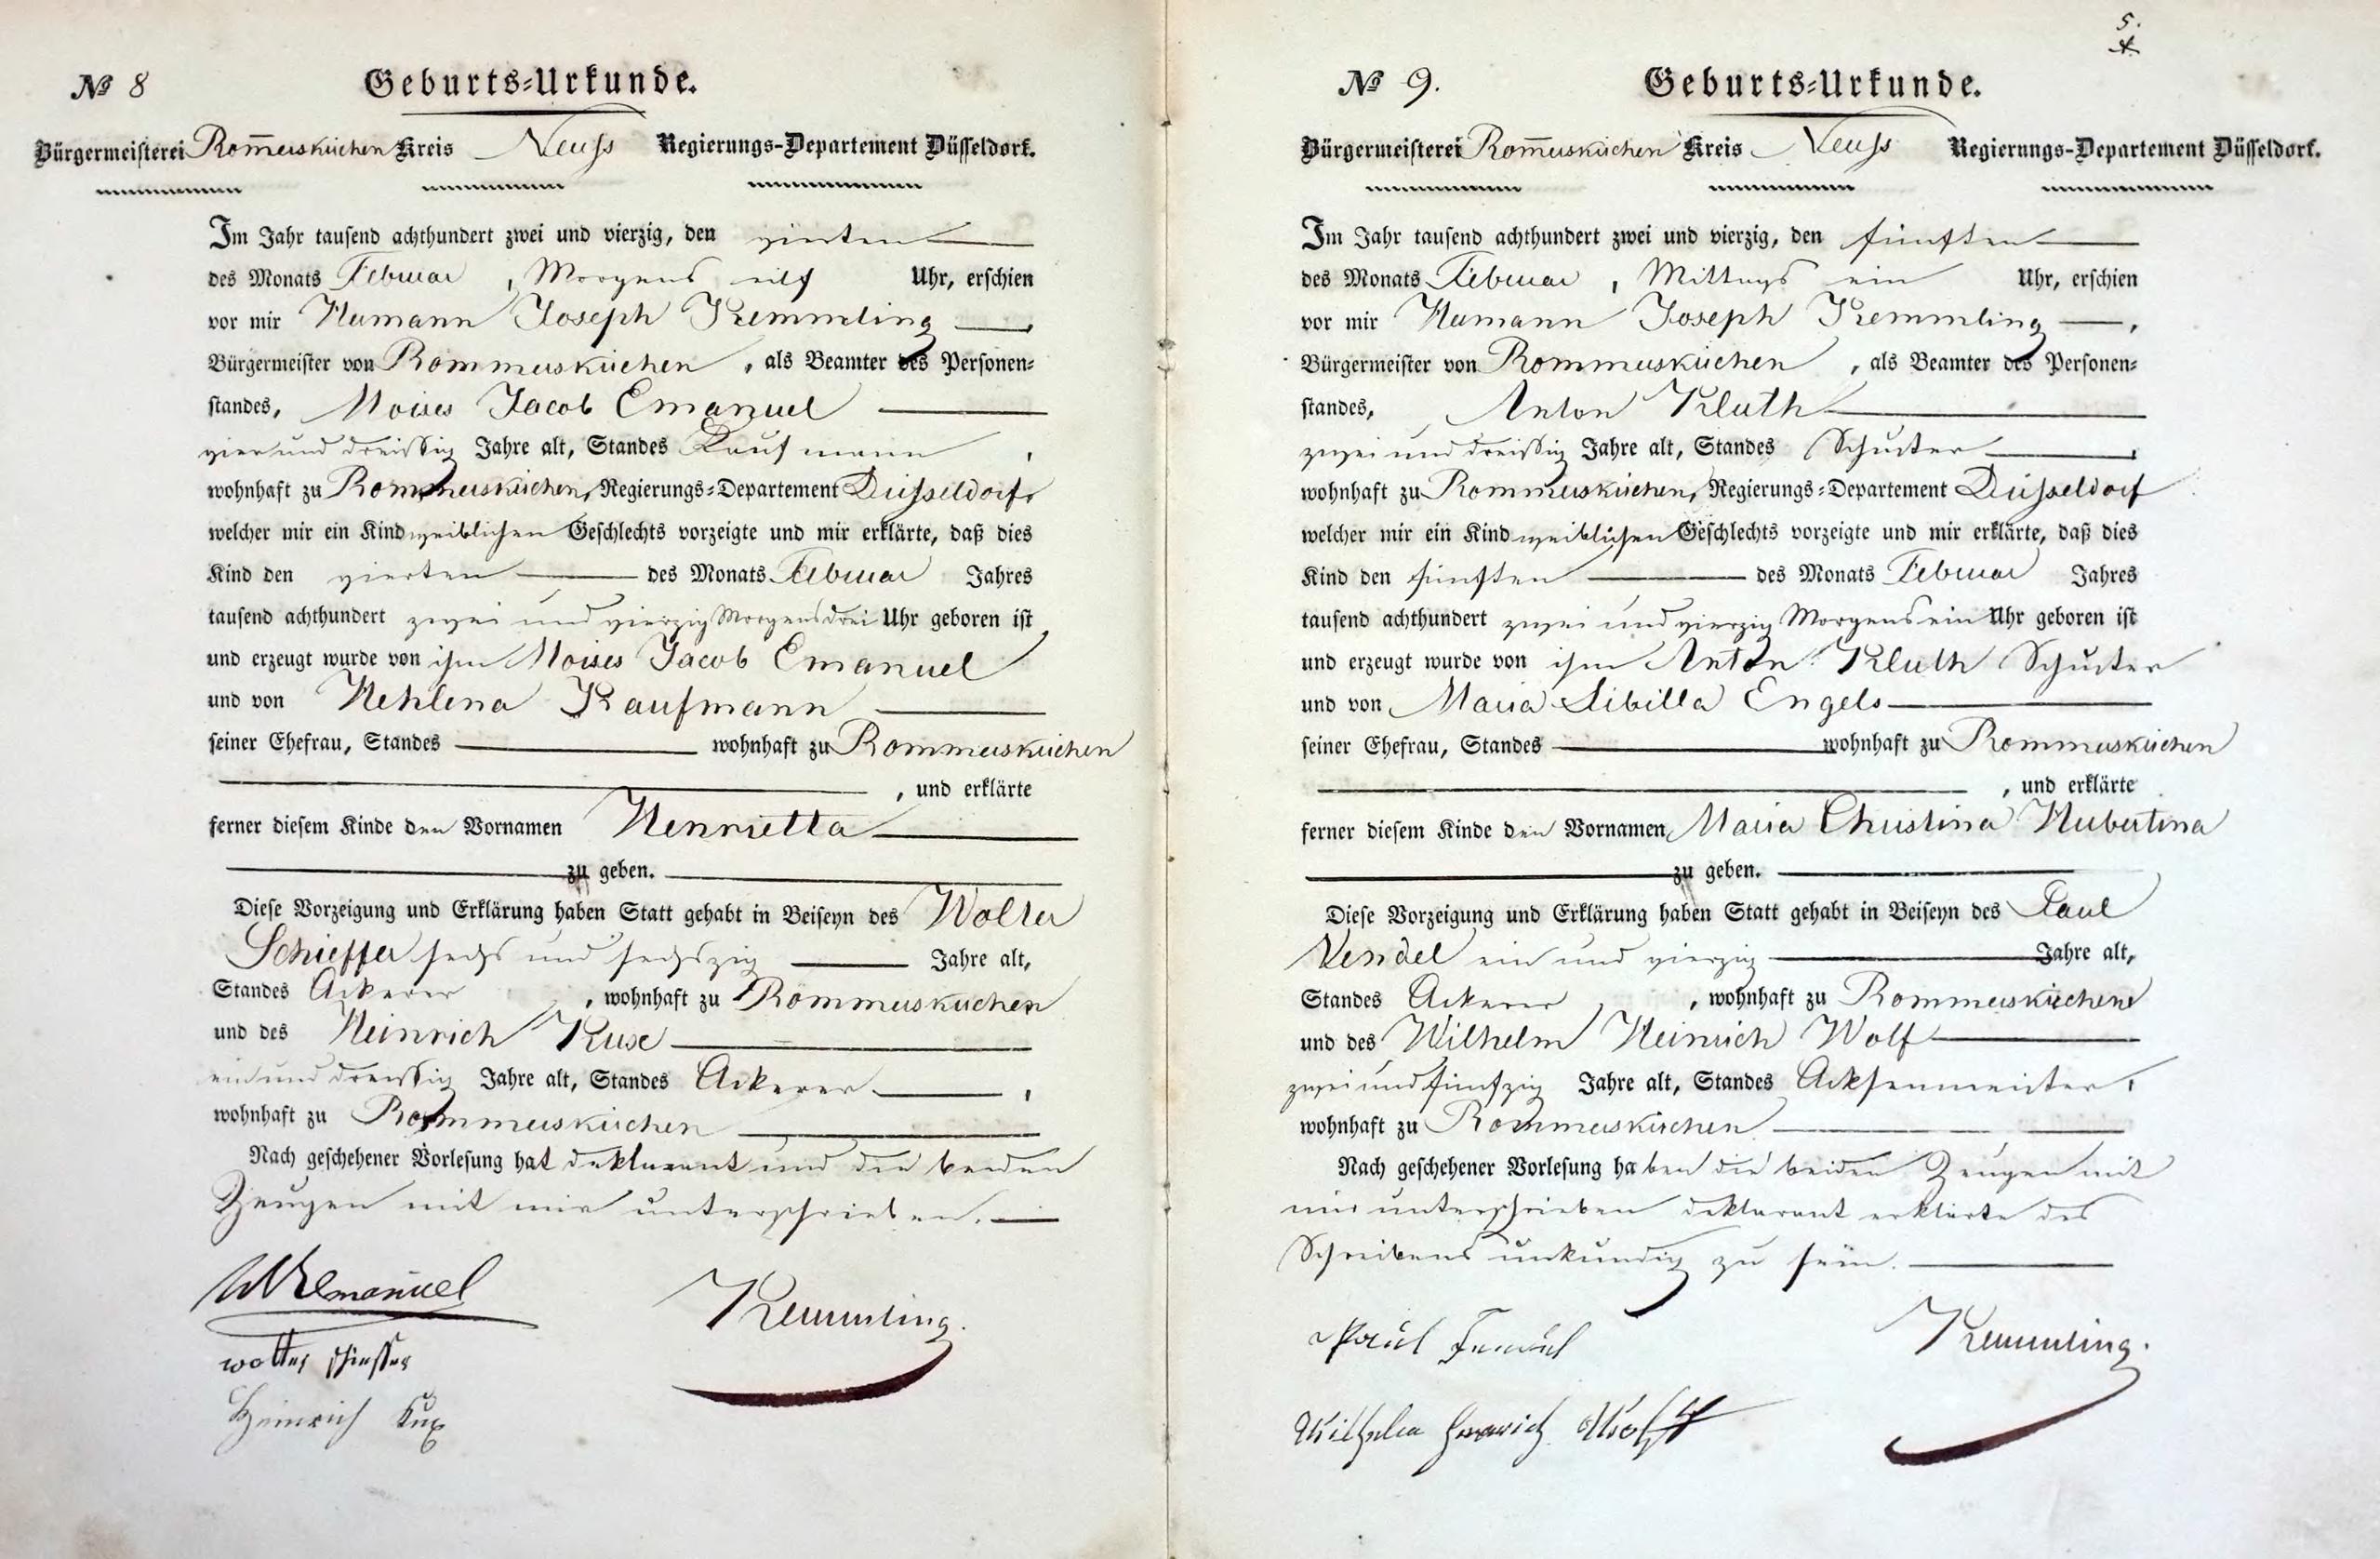 № 8
Geburts=Urkunde.
Bürgermeisterei Rom̄erskirchen Kreis Neuss Regierungs-Departement Düsseldorf.
Im Jahr tausend achthundert zwei und vierzig, den vierten
des Monats Februar, Morgens eilf Uhr, erschien
vor mir Hermann Joseph Kremmling,
Bürgermeister von Rommerskirchen, als Beamter des Personen=
standes, Moises Jacob Emanuel
vier und dreissig Jahre alt, Standes Kaufmann,
wohnhaft zu Rommerskirchen, Regierungs=Departement Düsseldorf,
welcher mir ein Kind weiblichen Geschlechts vorzeigte und mir erklärte, daß dies
Kind den vierten des Monats Februar Jahres
tausend achthundert zwei und vierzig Morgens drei Uhr geboren ist
und erzeugt wurde von ihm Moises Jacob Emanuel
und von Hehlena Kaufmann
seiner Ehefrau, Standes wohnhaft zu Rommerskirchen
, und erklärte
ferner diesem Kinde den Vornamen Henrietta
zu geben.
Diese Vorzeigung und Erklärung haben Statt gehabt in Beiseyn des Wolter
Schieffer sechs und sechszig Jahre alt,
Standes Ackerer, wohnhaft zu Rommerskirchen
und des Heinrich Kux
ein und dreissig Jahre alt, Standes Ackerer,
wohnhaft zu Rommerskirchen
Nach geschehener Vorlesung hat deklarant und die beiden
Zeugen mit mir unterschrieben.
Emanuel
Kremmling.
wolter schieffer
Heinrich Kux
5.
№ 9.
Geburts=Urkunde.
Bürgermeisterei Rom̄erskirchen Kreis Neuss Regierungs-Departement Düsseldorf.
Im Jahr tausend achthundert zwei und vierzig, den fünften
des Monats Februar, Mittags ein Uhr, erschien
vor mir Hermann Joseph Kremmling,
Bürgermeister von Rommerskirchen, als Beamter des Personen=
standes, Anton Kluth
zwei und dreissig Jahre alt, Standes Schuster,
wohnhaft zu Rommerskirchen, Regierungs=Departement Düsseldorf
welcher mir ein Kind weiblichen Geschlechts vorzeigte und mir erklärte, daß dies
Kind den fünften des Monats Februar Jahres
tausend achthundert zwei und vierzig Morgens ein Uhr geboren ist
und erzeugt wurde von ihm Anton Kluth Schuster
und von Maria Sibilla Engels
seiner Ehefrau, Standes wohnhaft zu Rommerskirchen
, und erklärte
ferner diesem Kinde den Vornamen Maria Christina Hubertina
zu geben.
Diese Vorzeigung und Erklärung haben Statt gehabt in Beiseyn des Paul
Vendel ein und vierzig Jahre alt,
Standes Ackerer, wohnhaft zu Rommerskirchen
und des Wilhelm Heinrich Wolf
zwei und fünfzig Jahre alt, Standes Achsenmeister,
wohnhaft zu Rommerskirchen
Nach geschehener Vorlesung haben die beiden Zeugen mit
mir unterschrieben deklarant erklärte des
Schreibens unkundig zu sein.
Paul
Kremmling.
Wilhelm Heinrich Wolff